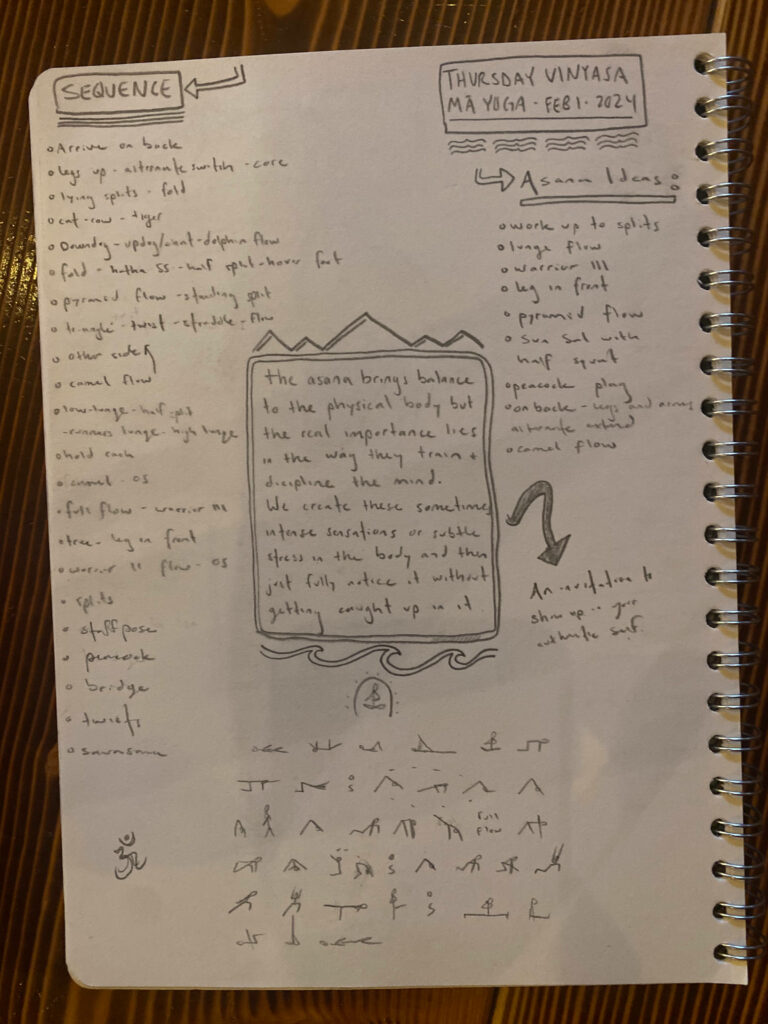 SEQUENCE
• Arrive on back
• legs up - alternate switch - core
• lying splits - fold
• cat - cow - tiger
• Downdog - updog/ - dolphin flow
• fold - hatha SS - half split - hover foot
• pyramid flow - standing split
• triangle - twist - straddle - flow
• other side
• camel flow
• low-lunge - half split
- runners lunge - high lunge
• hold each
• camel - OS
• full flow - warrior III
• tree - leg in front
• warrior II flow - OS
• splits
• staff pose
• peacock
• bridge
• twists
• savasana
ॐ
THURSDAY VINYASA
MĀ YOGA - FEB 1 - 2024
Asana Ideas:
• work up to splits
• lunge flow
• warrior III
• leg in front
• pyramid flow
• Sun Sal with
half squat
• peacock play
• on back - legs and arms
alternate extend
• camel flow
the asana brings balance
to the physical body but
the real importance lies
in the way they train +
discipline the mind.
We create these sometimes
intense sensations or subtle
stress in the body and then
just fully notice it without
getting caught up in it.
An invitation to
show up in your
authentic self.
full
flow